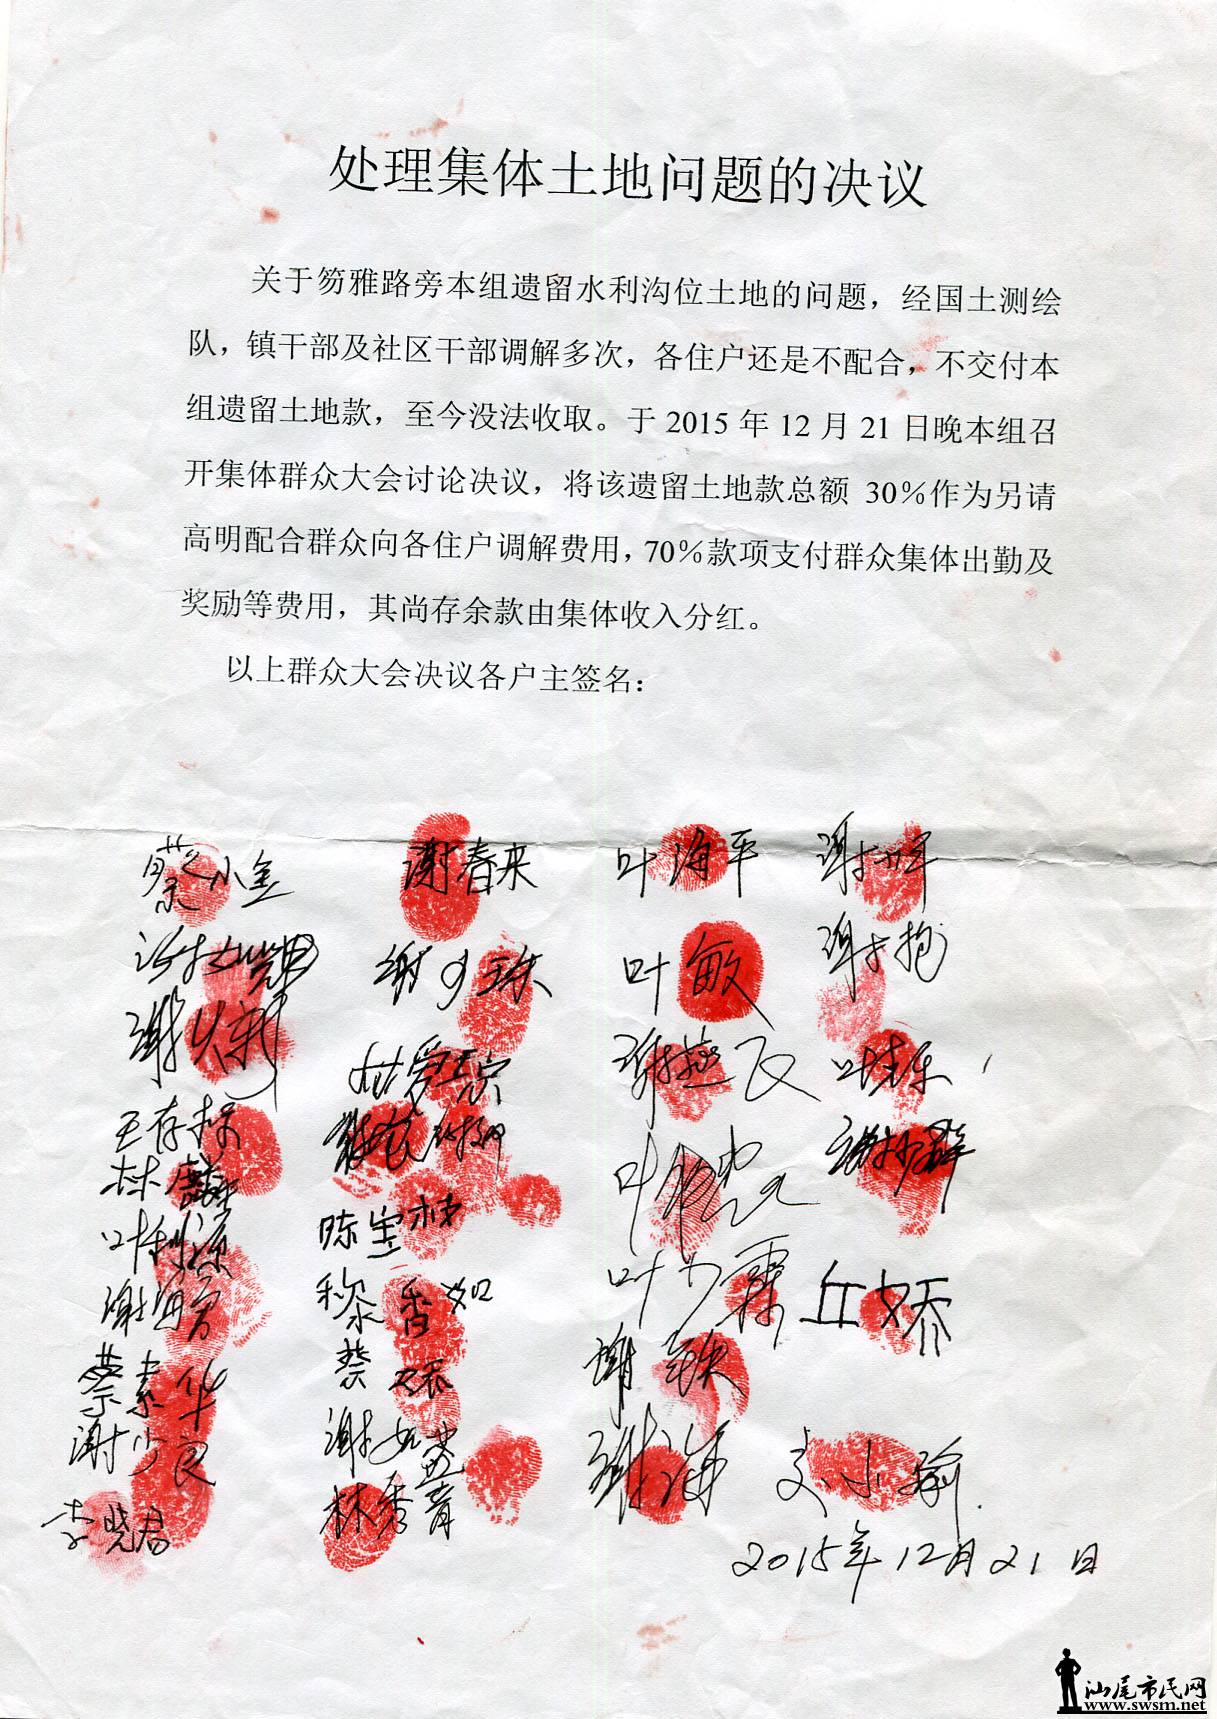 处理集体土地问题的决议
关于笏雅路旁本组遗留水利沟位土地的问题，经国土测绘
队，镇干部及社区干部调解多次，各住户还是不配合，不交付本
组遗留土地款，至今没法收取。于 2015 年 12 月 21 日晚本组召
开集体群众大会讨论决议，将该遗留土地款总额 30%作为另请
高明配合群众向各住户调解费用，70%款项支付群众集体出勤及
奖励等费用，其尚存余款由集体收入分红。
以上群众大会决议各户主签名：
蔡小金 谢春来 叶海平
谢少珠 叶敏 谢抱
谢燕飞
王存标
林
陈宝林
叶利源
黎香如 叶少霖 丘娇
谢 谢铁
蔡素华
谢少良 谢海
李晓君 林秀青 小瑜
2015年12月21日
汕尾市民网
www.swsm.net